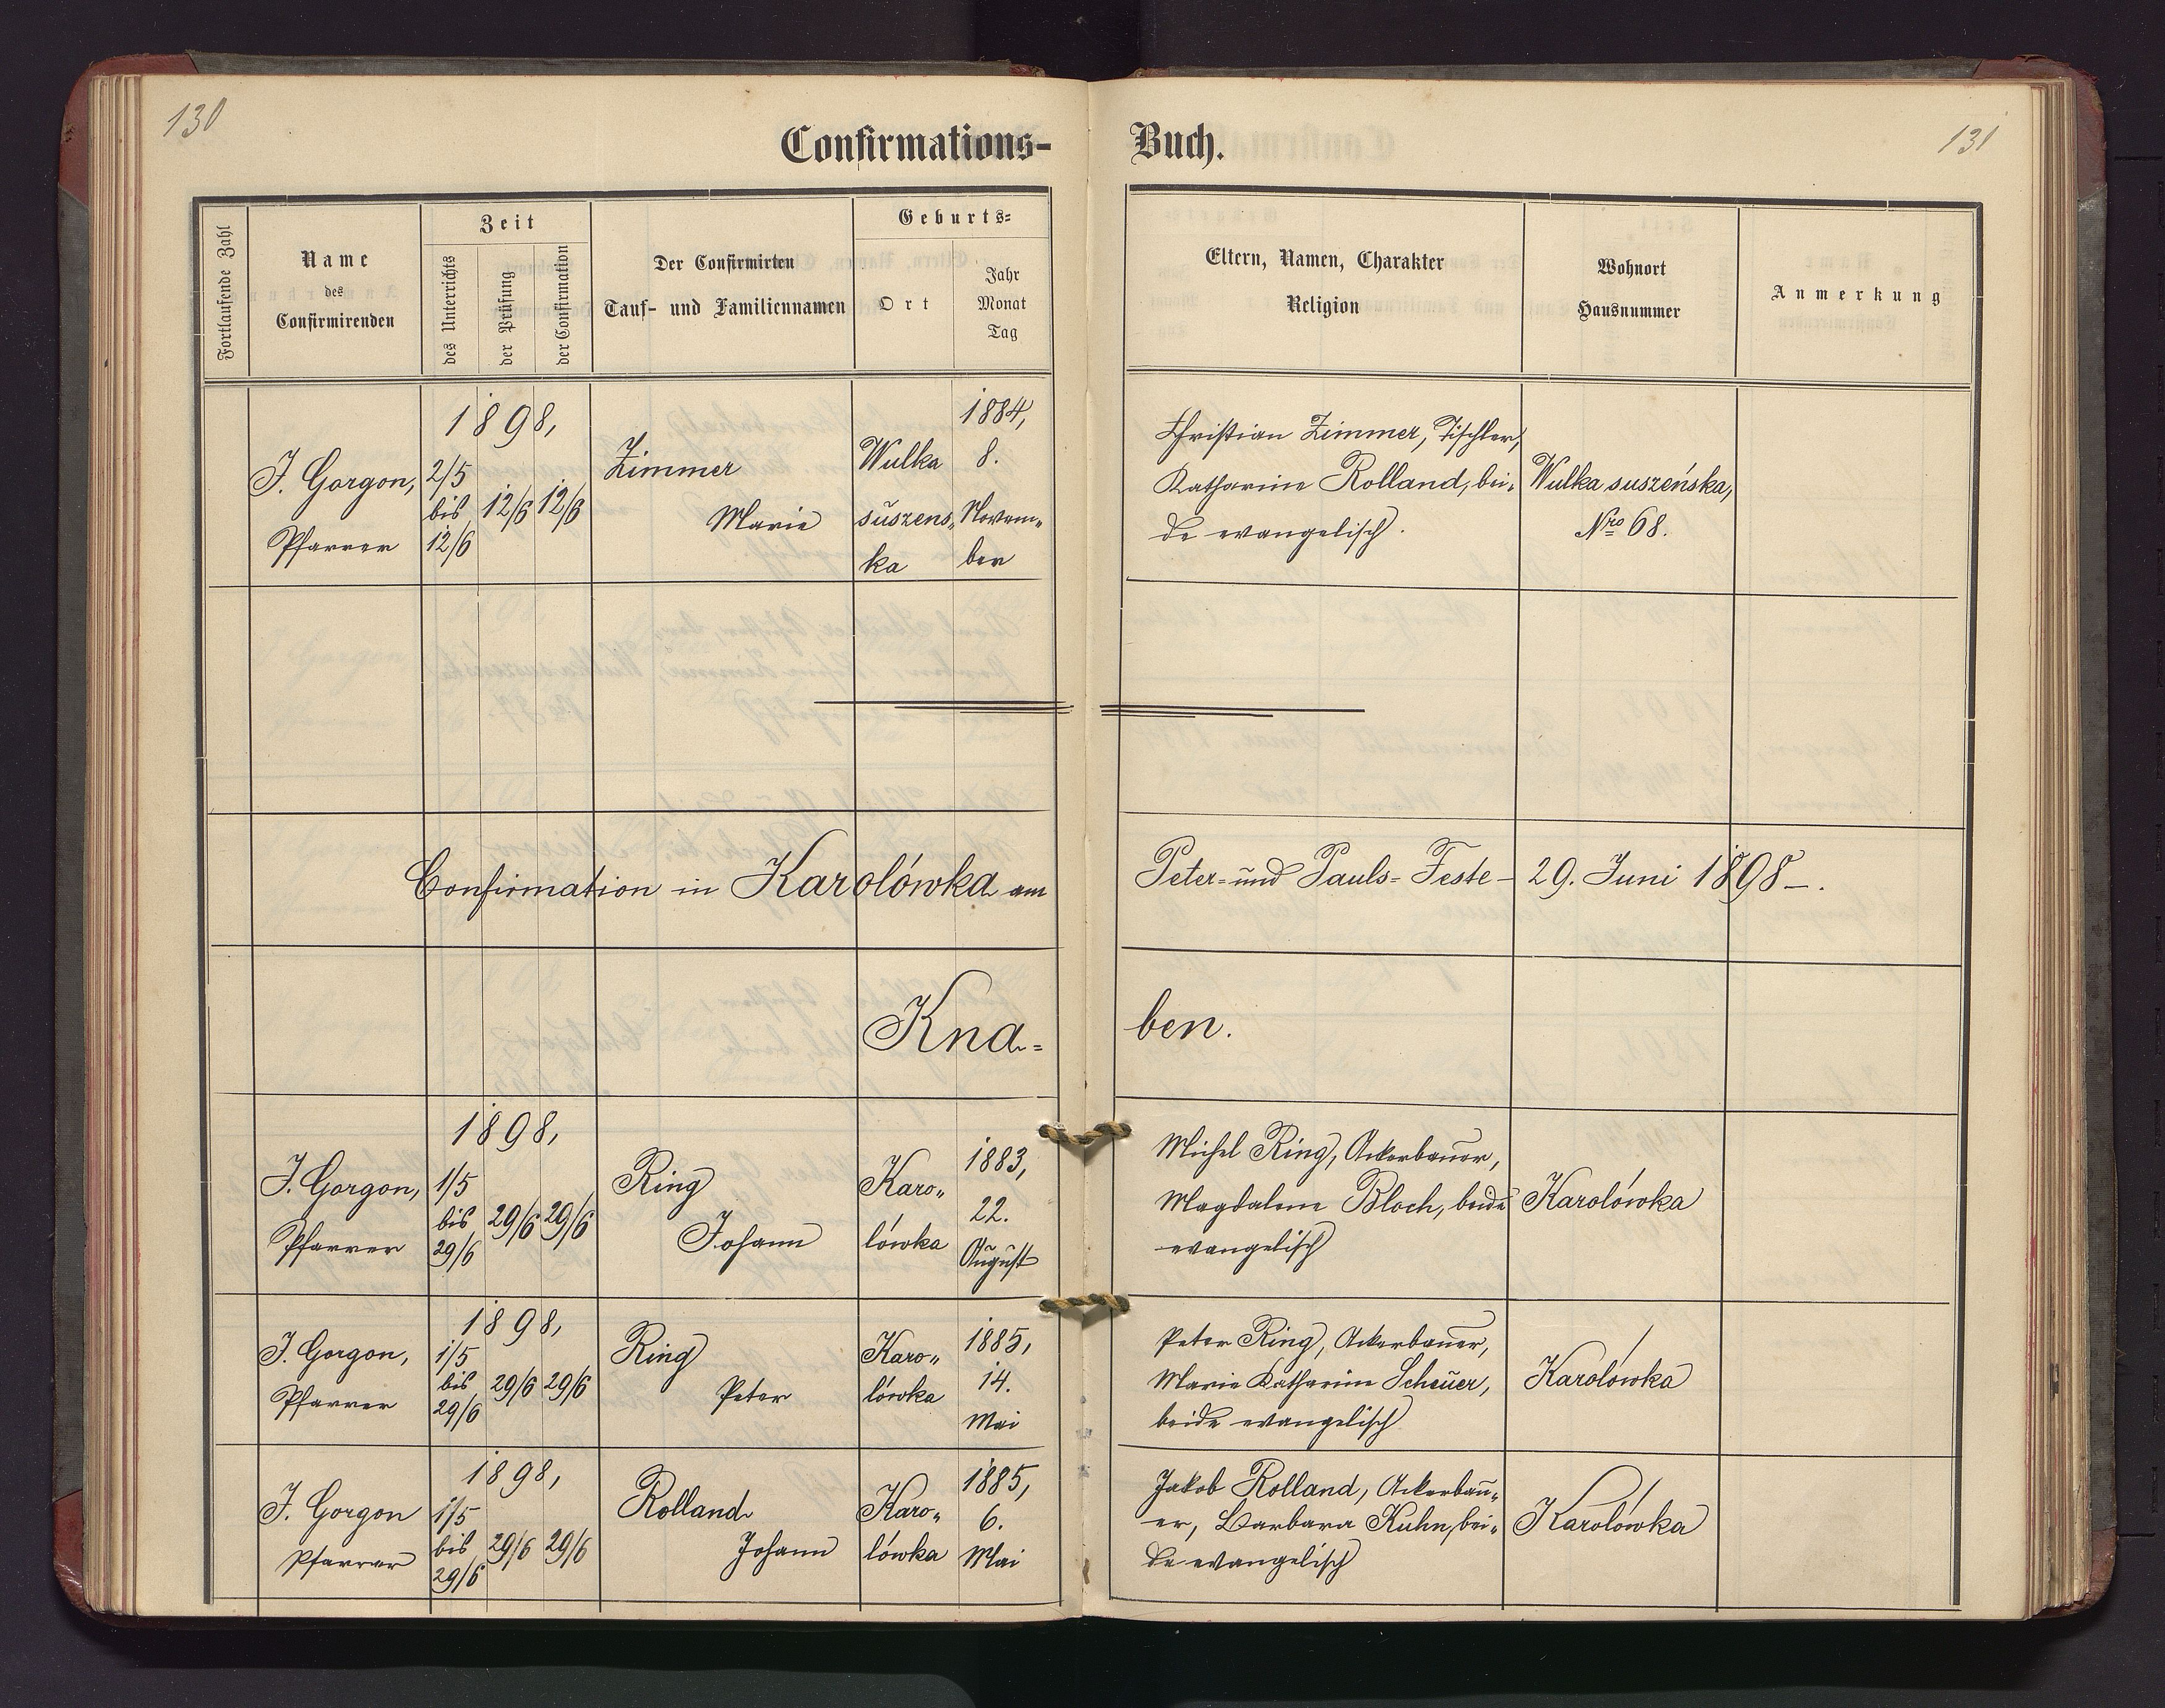 130
131
Confirmations-Buch.
Fortlaufende Zahl
Name
des
Confirmirenden
Zeit
des Unterrichts
der Prüfung
der Confirmation
Der Confirmirten
Tauf- und Familiennamen
Geburts-
Ort
Jahr
Monat
Tag
Eltern, Namen, Charakter
Religion
Wohnort
Hausnummer
Anmerkung
J. Gorgon,
Pfarrer
1898,
2/5
bis
12/6
12/6
12/6
Zimmer
Marie
Wulka
suszens-
ka
1884,
8.
Novem-
ber
Christian Zimmer, Tischler,
Katharine Rolland, bei-
de evangelisch.
Wulka suszeńska,
Nro 68.
Confirmation in Karolówka am Peter- und Pauls-Feste - 29. Juni 1898 -.
Kna-ben.
J. Gorgon,
Pfarrer
1898,
1/5
bis
29/6
29/6
29/6
Ring
Johann
Karo-
lówka
1883,
22.
August
Michel Ring, Ackerbauer,
Magdalene Bloch, beide
evangelisch
Karolówka
J. Gorgon,
Pfarrer
1898,
1/5
bis
29/6
29/6
29/6
Ring
Peter
Karo-
lówka
1885,
14.
Mai
Peter Ring, Ackerbauer,
Marie Katharine Scheuer,
beide evangelisch
Karolówka
J. Gorgon
Pfarrer
1898,
1/5
bis
29/6
29/6
29/6
Rolland
Johann
Karo-
lówka
1885,
6.
Mai
Jakob Rolland, Ackerbau-
er, Barbara Kuhn, bei-
de evangelisch
Karolówka